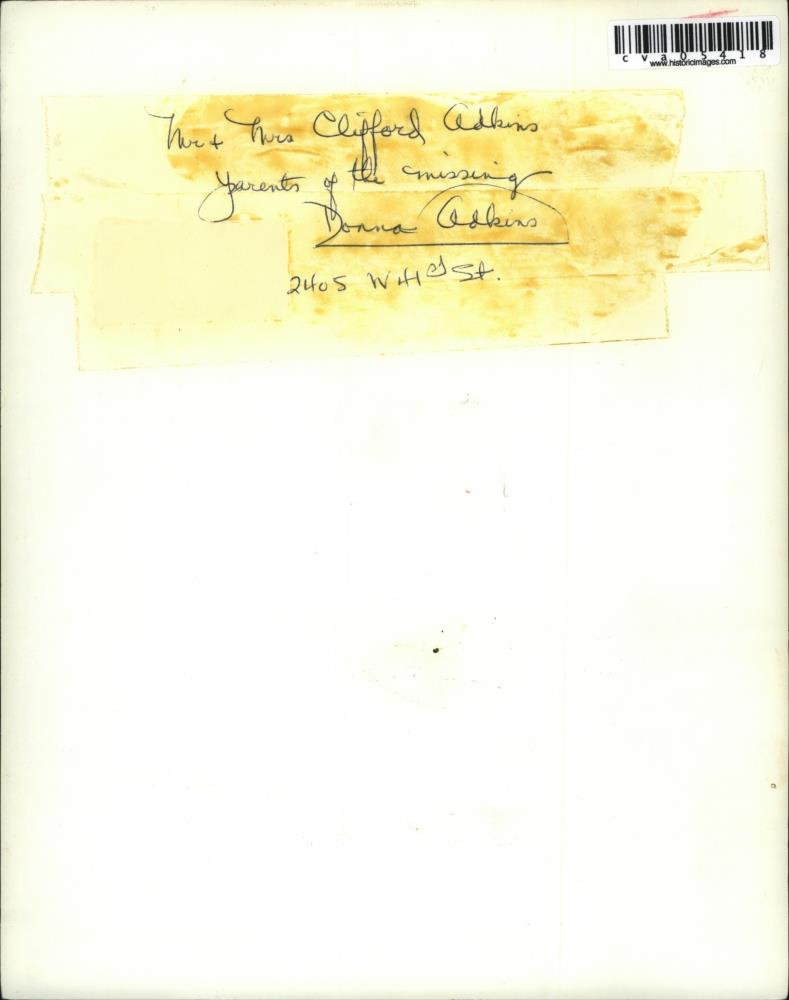 cva05418
www.historicimages.com
Mr + Mrs Clifford Adkins
parents of the missing
Donna Adkins
2405 W 41st St.